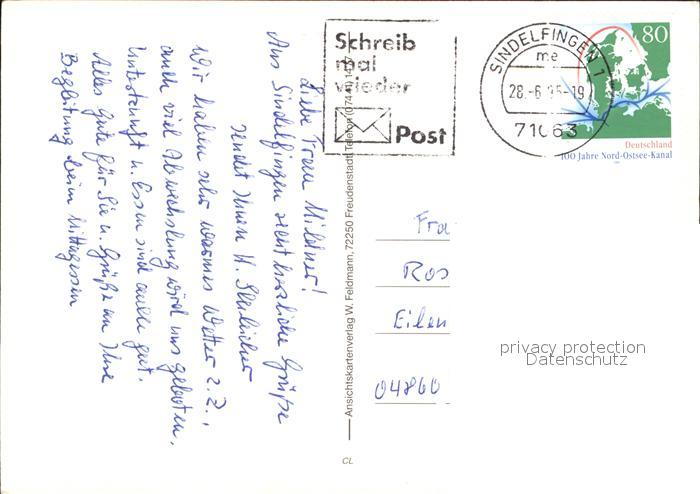 Liebe Frau Mildner!
Aus Sindelfingen recht herzliche Grüße
sendet Ihnen H.
Wir haben sehr warmes Wetter z.Z.,
auch viel Abwechslung wird uns geboten.
Unterkunft u. Essen sind auch gut.
Alles Gute für Sie u. Grüße an Ihre
Begleitung beim Mittagessen
Schreib
mal
wieder
Post
SINDELFINGEN 1
me
28.-6.95-19
71063
80
Deutschland
100 Jahre Nord-Ostsee-Kanal
Ansichtskartenverlag W. Feldmann, 72250 Freudenstadt, Telefon
CL
Fra
Ros
Eilen
04860
privacy protection
Datenschutz